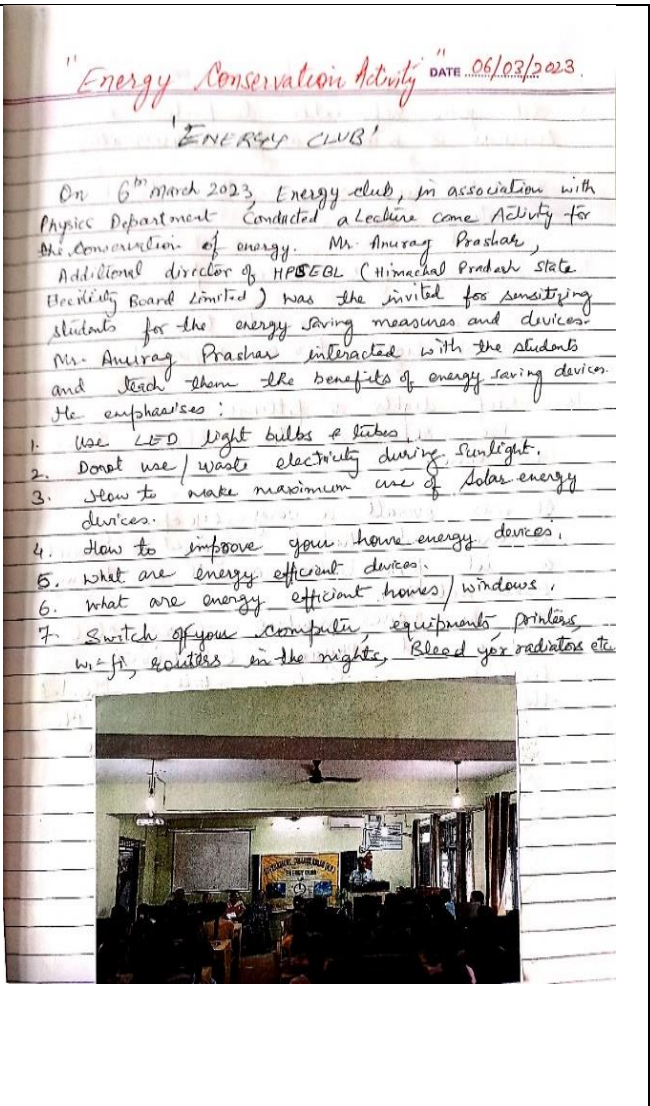 "Energy Conservation Activity" DATE 06/03/2023
'ENERGY CLUB'
On 6th March 2023, Energy club, in association with
Physics Department Conducted a Lecture come Activity for
the Conservation of energy. Mr. Anurag Prashar,
Additional director of HPSEBL (Himachal Pradesh State
Electricity Board Limited) was the invited for sensitizing
students for the energy saving measures and devices.
Mr. Anurag Prashar interacted with the students
and teach them the benefits of energy saving devices.
He emphasises :
1. Use LED light bulbs & tubes
2. Donot use / waste electricity during sunlight.
3. How to make maximum use of Solar energy
devices.
4. How to improve your home energy devices.
5. What are energy efficient devices.
6. What are energy efficient homes / windows.
7. Switch off your computer, equipments, printers,
Wi-fi, routers in the nights, Bleed your radiators etc.